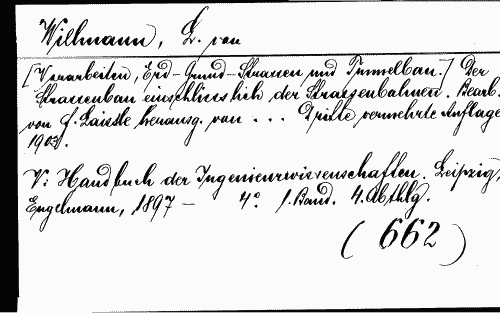 Willmann, L. von
[Vorarbeiten, Erd-Grund-Strassen und Tunnelbau.] Der
Strassenbau einschliesslich der Strassenbahnen. Bearb.
von F. Laissle herausg. von ... Dritte vermehrte Auflage
1903.
V: Handbuch der Ingenieurwissenschaften. Leipzig,
Engelmann, 1897 – 4° 1. Band. 4. Abthlg.
(662)